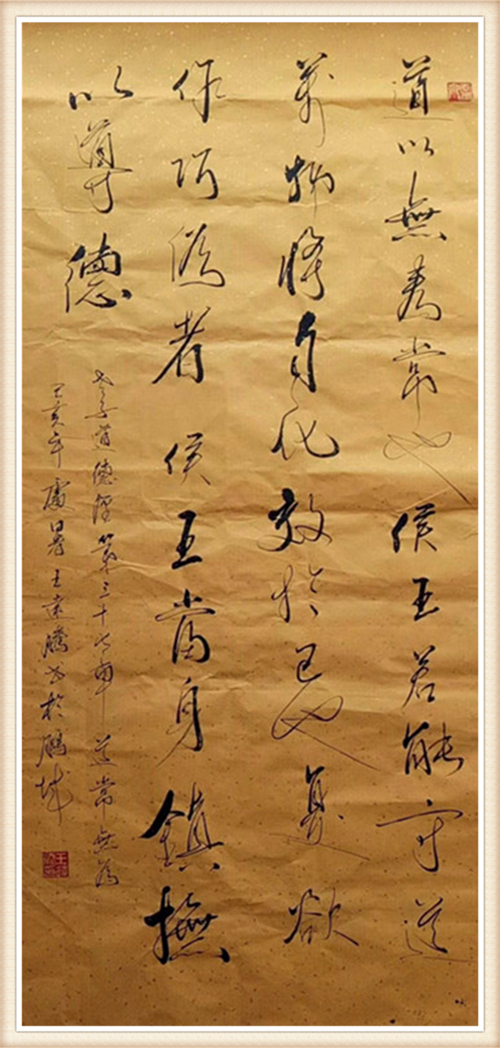 道以無為常也侯王若能守道
萬物將自化效於己也復欲
作巧偽者侯王當身鎮撫
以導德
老子道德經第三十七章道常無為
己亥年處暑王遠勝書於鵬城